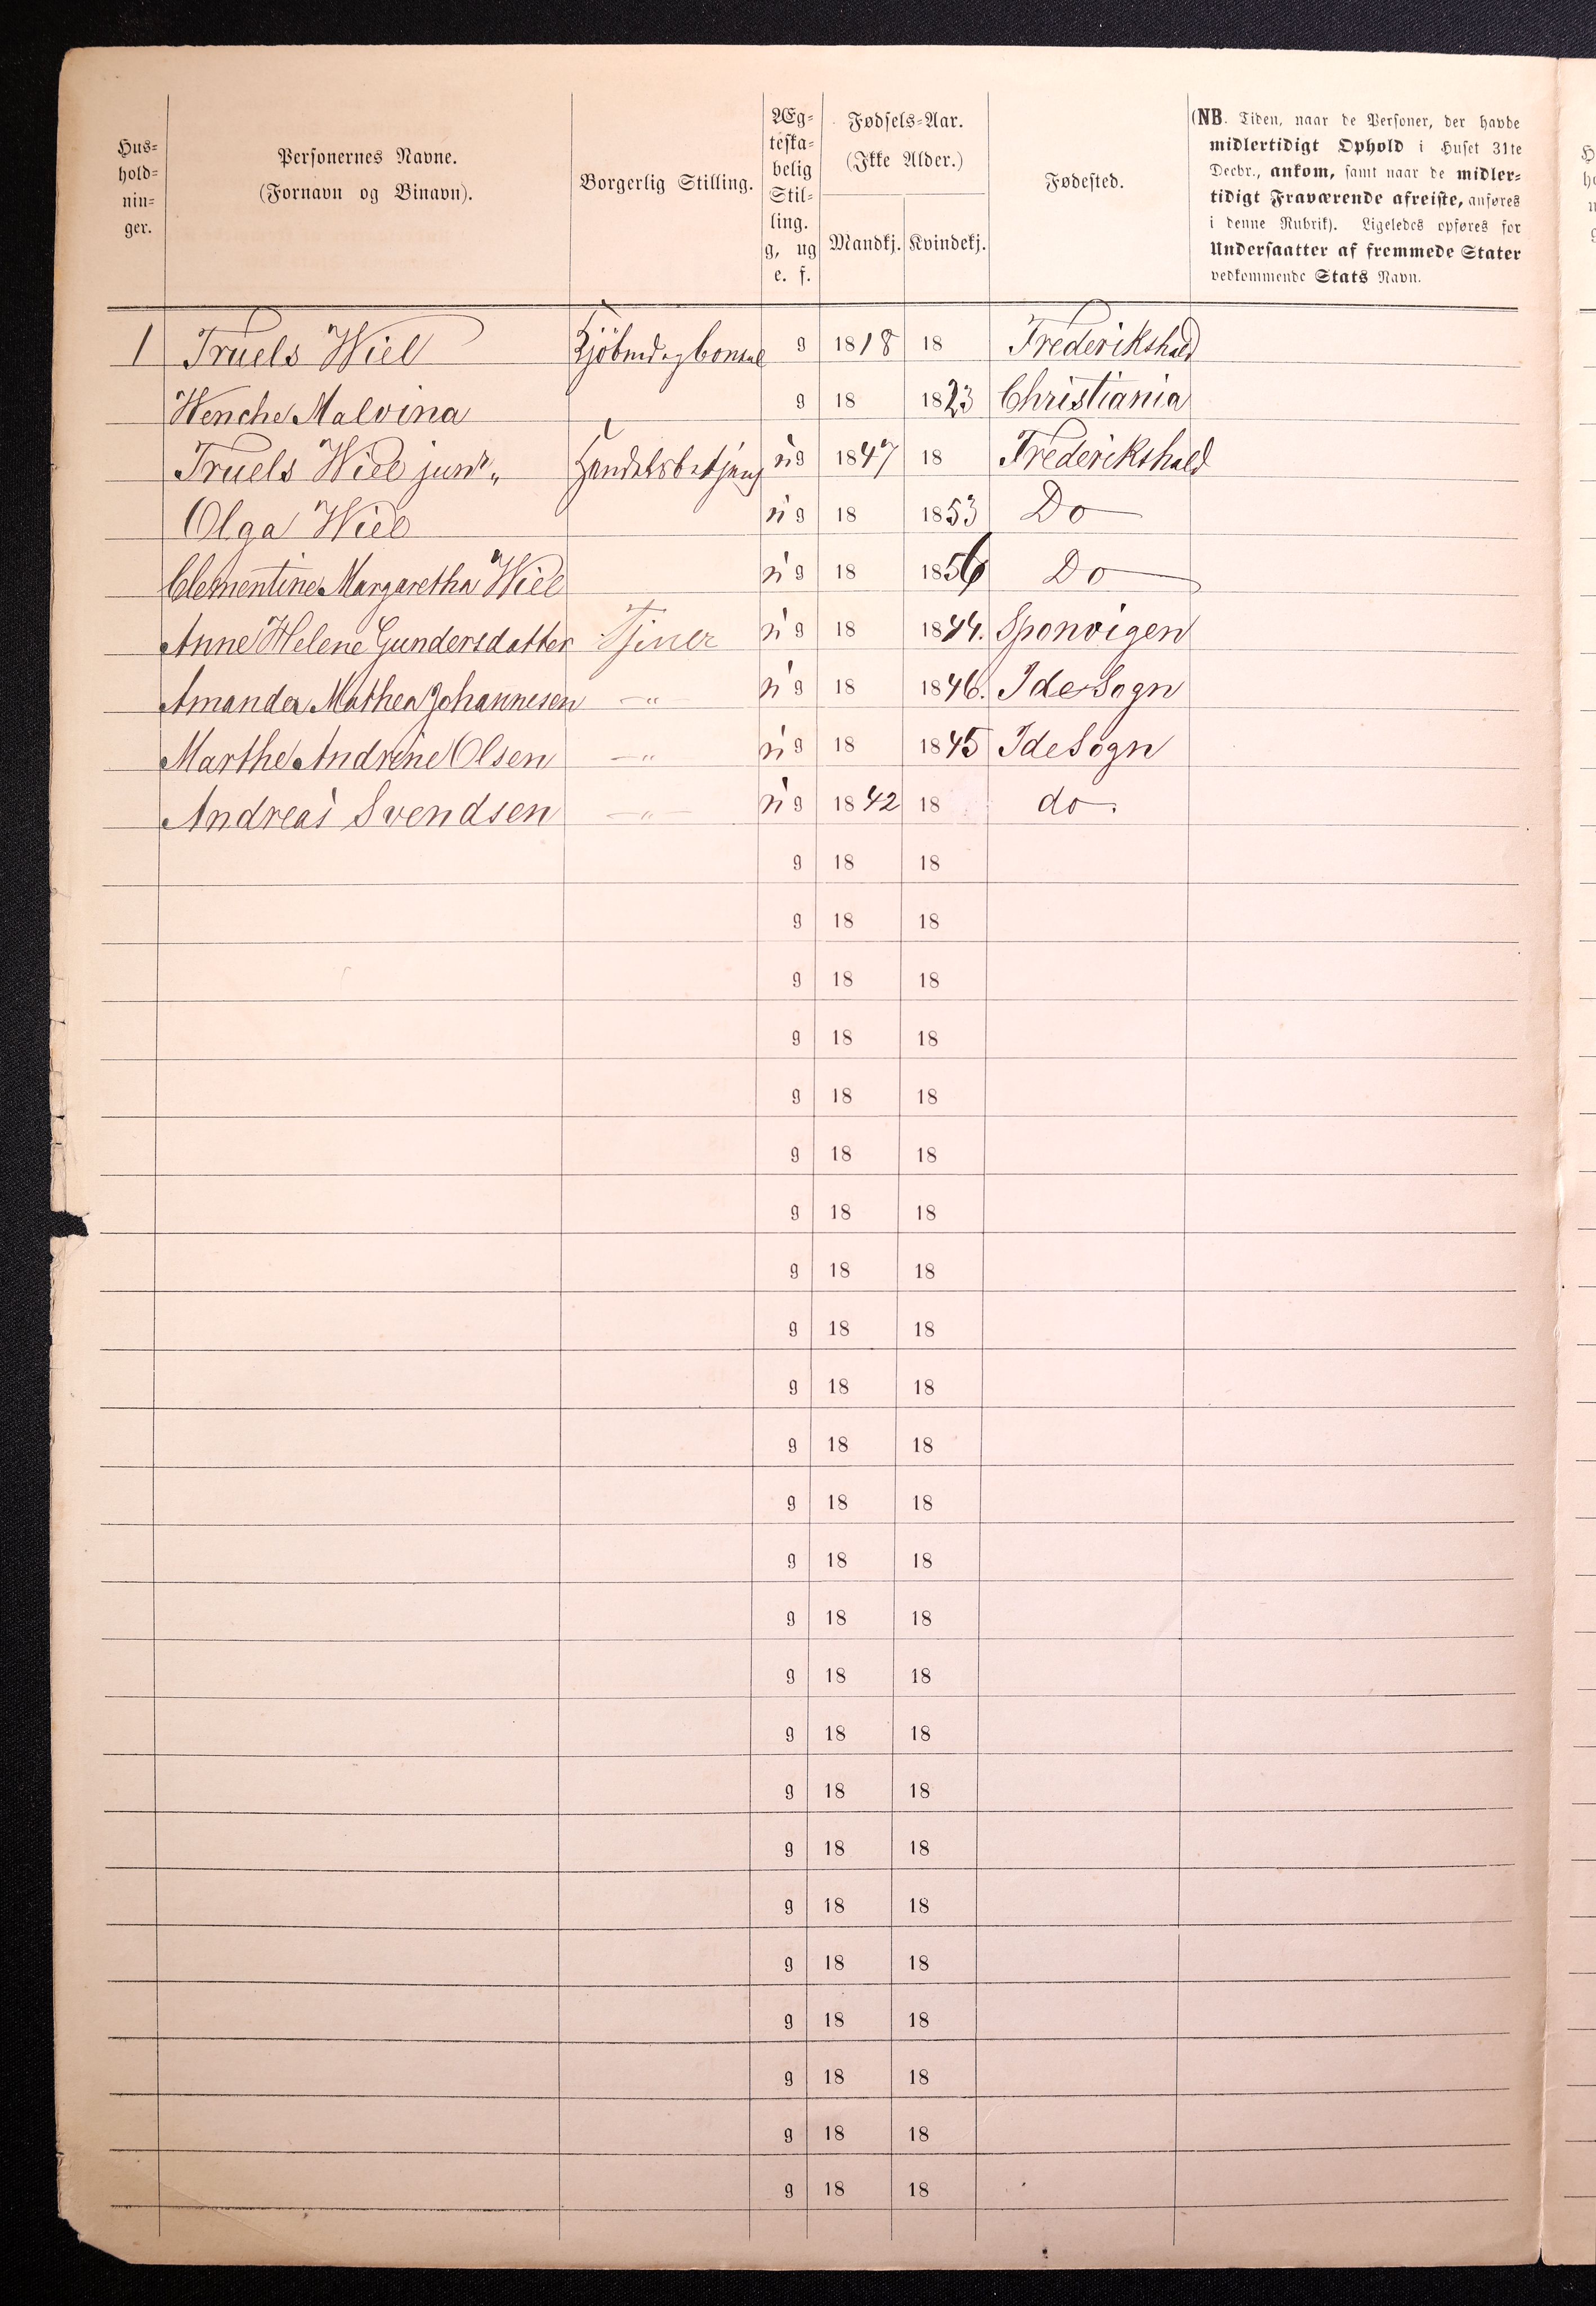 Hus-
hold-
nin-
ger.
Personernes Navne.
(Fornavn og Binavn).
Borgerlig Stilling.
Æg-
teska-
belig
Stil-
ling.
g, ug
e. f.
Fødsels-Aar.
(Ikke Alder.)
Mandkj. Kvindekj.
Fødested.
(NB. Tiden, naar de Personer, der havde
midlertidigt Ophold i Huset 31te
Decbr., ankom, samt naar de midler-
tidigt Fraværende afreiste, anføres
i denne Rubrik). Ligeledes opføres for
Undersaatter af fremmede Stater
vedkommende Stats Navn.
1 Truels Wiel Kjöbmd og Consul g 1818 18 Frederikshald
Wenche Malvina g 18 1823 Christiania
Truels Wiel junr„ Handelsbetjent ug 1847 18 Frederikshald
Olga Wiel ug 18 1853 Do
Clementine Margaretha Wiel ug 18 1856 Do
Anne Helene Gundersdatter Tjener ug 18 1844. Sponvigen
Amanda Mathea Johannesen –„– ug 18 1846. Ide Sogn
Marthe Andrine Olsen –„ ug 18 1845 Ide Sogn
Andreas Svendsen –„– ug 1842 18 do.
g 18 18
g 18 18
g 18 18
g 18 18
g 18 18
g 18 18
g 18 18
g 18 18
g 18 18
g 18 18
g 18 18
g 18 18
g 18 18
g 18 18
g 18 18
g 18 18
g 18 18
g 18 18
g 18 18
g 18 18
g 18 18
g 18 18
g 18 18
g 18 18